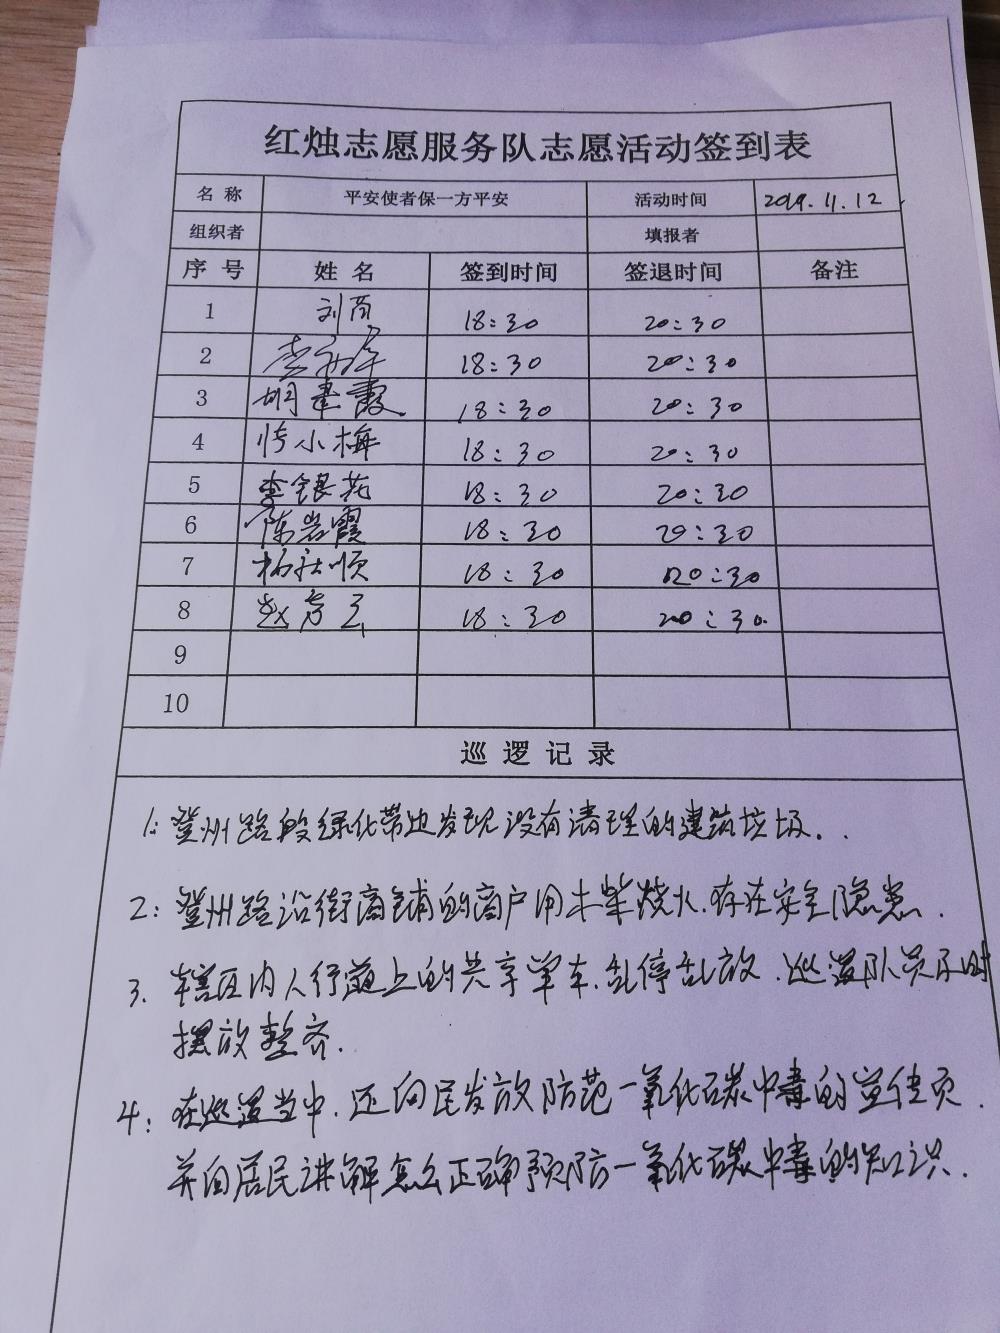 红烛志愿服务队志愿活动签到表
名 称 平安使者保一方平安 活动时间 2019.11.12
组织者 填报者
序 号 姓 名 签到时间 签退时间 备注
1 刘 18:30 20:30
2 李 18:30 20:30
3 胡建霞 18:30 20:30
4 小梅 18:30 20:30
5 李银花 18:30 20:30
6 陈岩霞 18:30 20:30
7 杨秋顺 18:30 20:30
8 赵秀云 18:30 20:30
9
10
巡 逻 记 录
1: 登州路段绿化带边发现没有清理的建筑垃圾.
2: 登州路沿街商铺的商户用木柴烧火.存在安全隐患.
3. 辖区内人行道上的共享单车.乱停乱放.巡逻队员及时
摆放整齐.
4: 在巡逻当中.还向民发放防范一氧化碳中毒的宣传页.
并向居民讲解怎么正确预防一氧化碳中毒的知识.